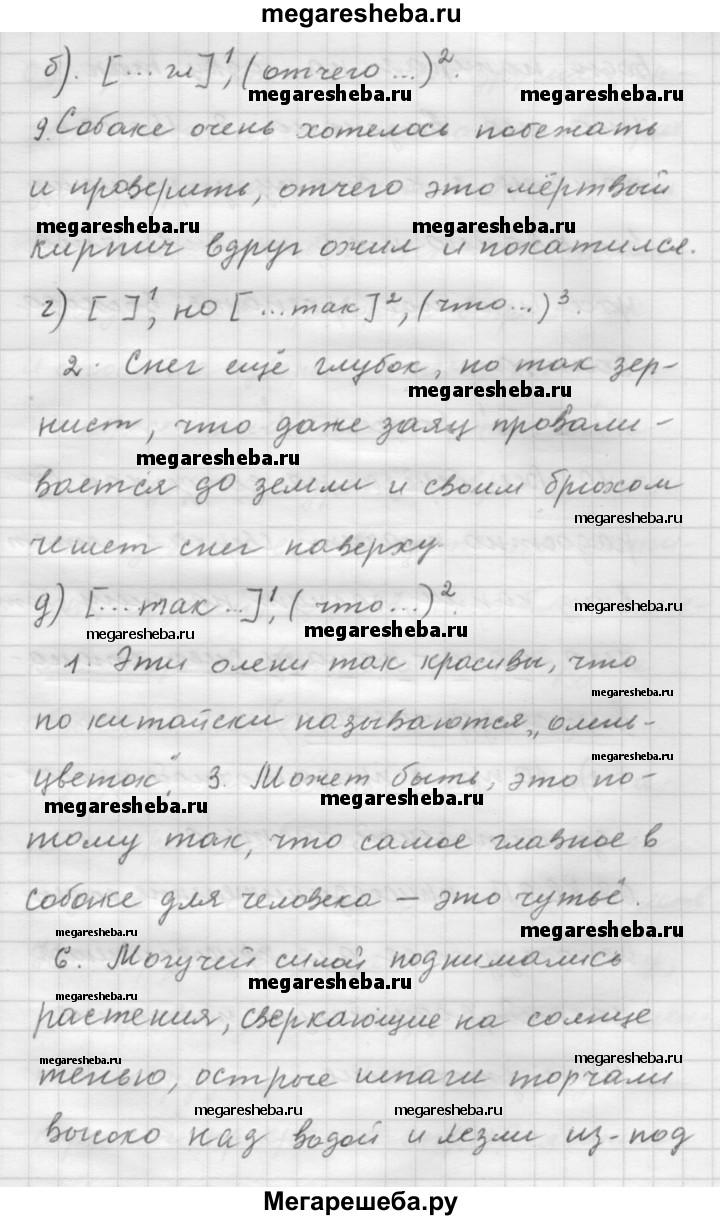 megaresheba.ru
б). [... гл]¹, (отчего ...)².
megaresheba.ru megaresheba.ru
9. Собаке очень хотелось побежать
и проверить, отчего это мёртвый
megaresheba.ru megaresheba.ru
кирпич вдруг ожил и покатился.
г) [ ]¹, но [...так]², (что...)³.
2. Снег ещё глубок, но так зер-
megaresheba.ru
нист, что даже заяц провали-
megaresheba.ru
вается до земли и своим брюхом
megaresheba.ru
чешет снег наверху.
д) [...так...]¹, (что...)².
megaresheba.ru
megaresheba.ru megaresheba.ru
1. Эти олени так красивы, что
megaresheba.ru
по китайски называются „олень-
megaresheba.ru
цветок". 3. Может быть, это по-
megaresheba.ru megaresheba.ru
тому так, что самое главное в
собаке для человека – это чутьё.
megaresheba.ru megaresheba.ru
6. Могучей силой поднимались
megaresheba.ru megaresheba.ru
растения, сверкающие на солнце
megaresheba.ru megaresheba.ru
тенью, острые шпаги торчали
megaresheba.ru megaresheba.ru
высоко над водой и лезли из-под
Мегарешеба.ру